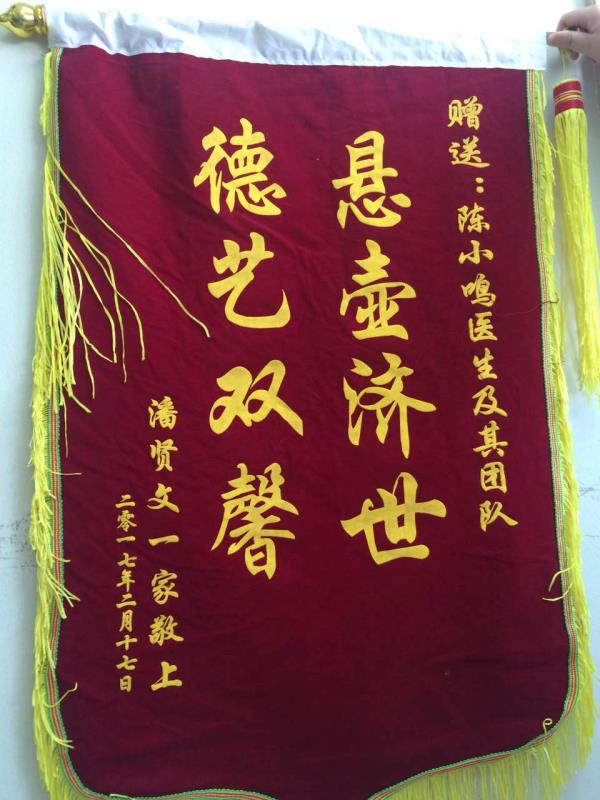 赠送：陈小鸣医生及其团队
悬壶济世
德艺双馨
潘贤文一家敬上
二零一七年二月十七日